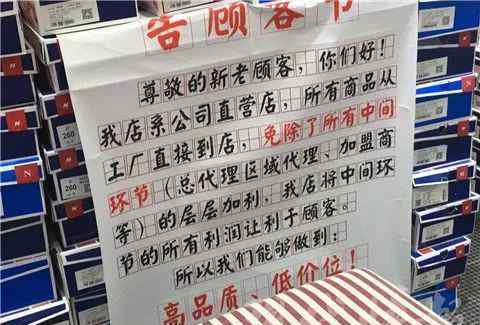 告顾客书
尊敬的新老顾客，你们好！
我店系公司直营店，所有商品从
工厂直接到店，免除了所有中间
环节（总代理区域代理、加盟商
等）的层层加利，我店将中间环
节的所有利润让利于顾客。
所以我们能够做到：
高品质、低价位！
260
260
N
N
N
N